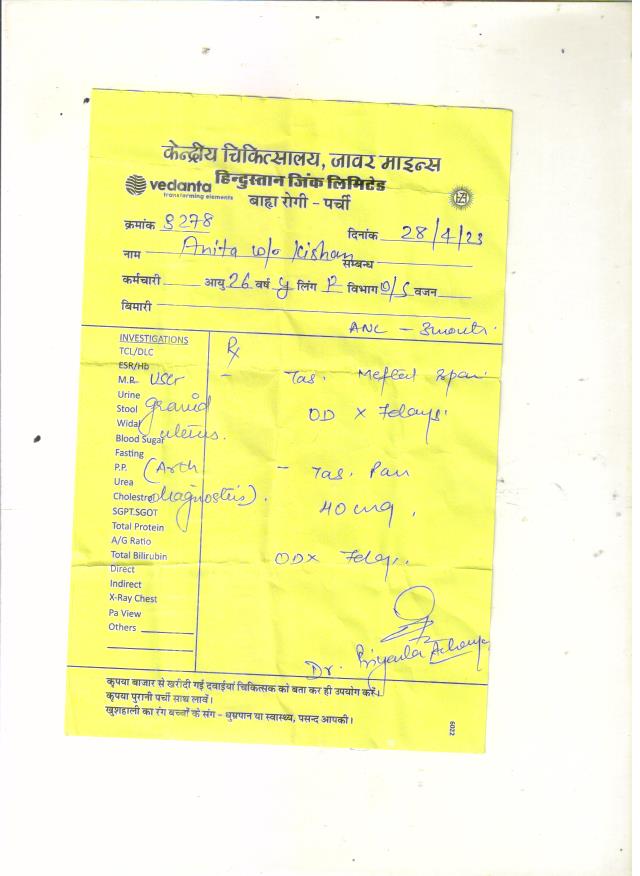 केन्द्रीय चिकित्सालय, जावर माइन्स
हिन्दुस्तान जिंक लिमिटेड
vedanta
transforming elements
बाह्य रोगी - पर्ची
क्रमांक 5278
दिनांक 28/4/23
नाम Anita w/o Kishan सम्बन्ध
कर्मचारी आयु 26 वर्ष y लिंग F विभाग O/S वजन
बिमारी
ANC - 3month
INVESTIGATIONS
TCL/DLC
ESR/Hb
M.P. USG
Urine gravid
Stool
Widal uterus.
Blood Sugar
Fasting
P.P. (Arth
Urea
Cholestrol diagnostis).
SGPT.SGOT
Total Protein
A/G Ratio
Total Bilirubin
Direct
Indirect
X-Ray Chest
Pa View
Others
Rx
- Tab. Meftal Spas
OD X 7days.
- Tab. Pan
40 mg.
OD X 7days.
Dr. Priyanka
कृपया बाजार से खरीदी गई दवाईयां चिकित्सक को बता कर ही उपयोग करें।
कृपया पुरानी पर्ची साथ लावें।
खुशहाली का रंग बच्चों के संग - धुम्रपान या स्वास्थ्य, पसन्द आपकी।
6022